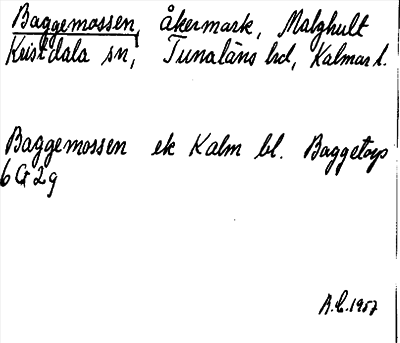 Baggemossen, åkermark, Malghult
Kristdala sn, Tunaläns hd, Kalmar l.
Baggemossen ek Kalm bl. Baggetorp
6 G 2 g
A.C. 1957